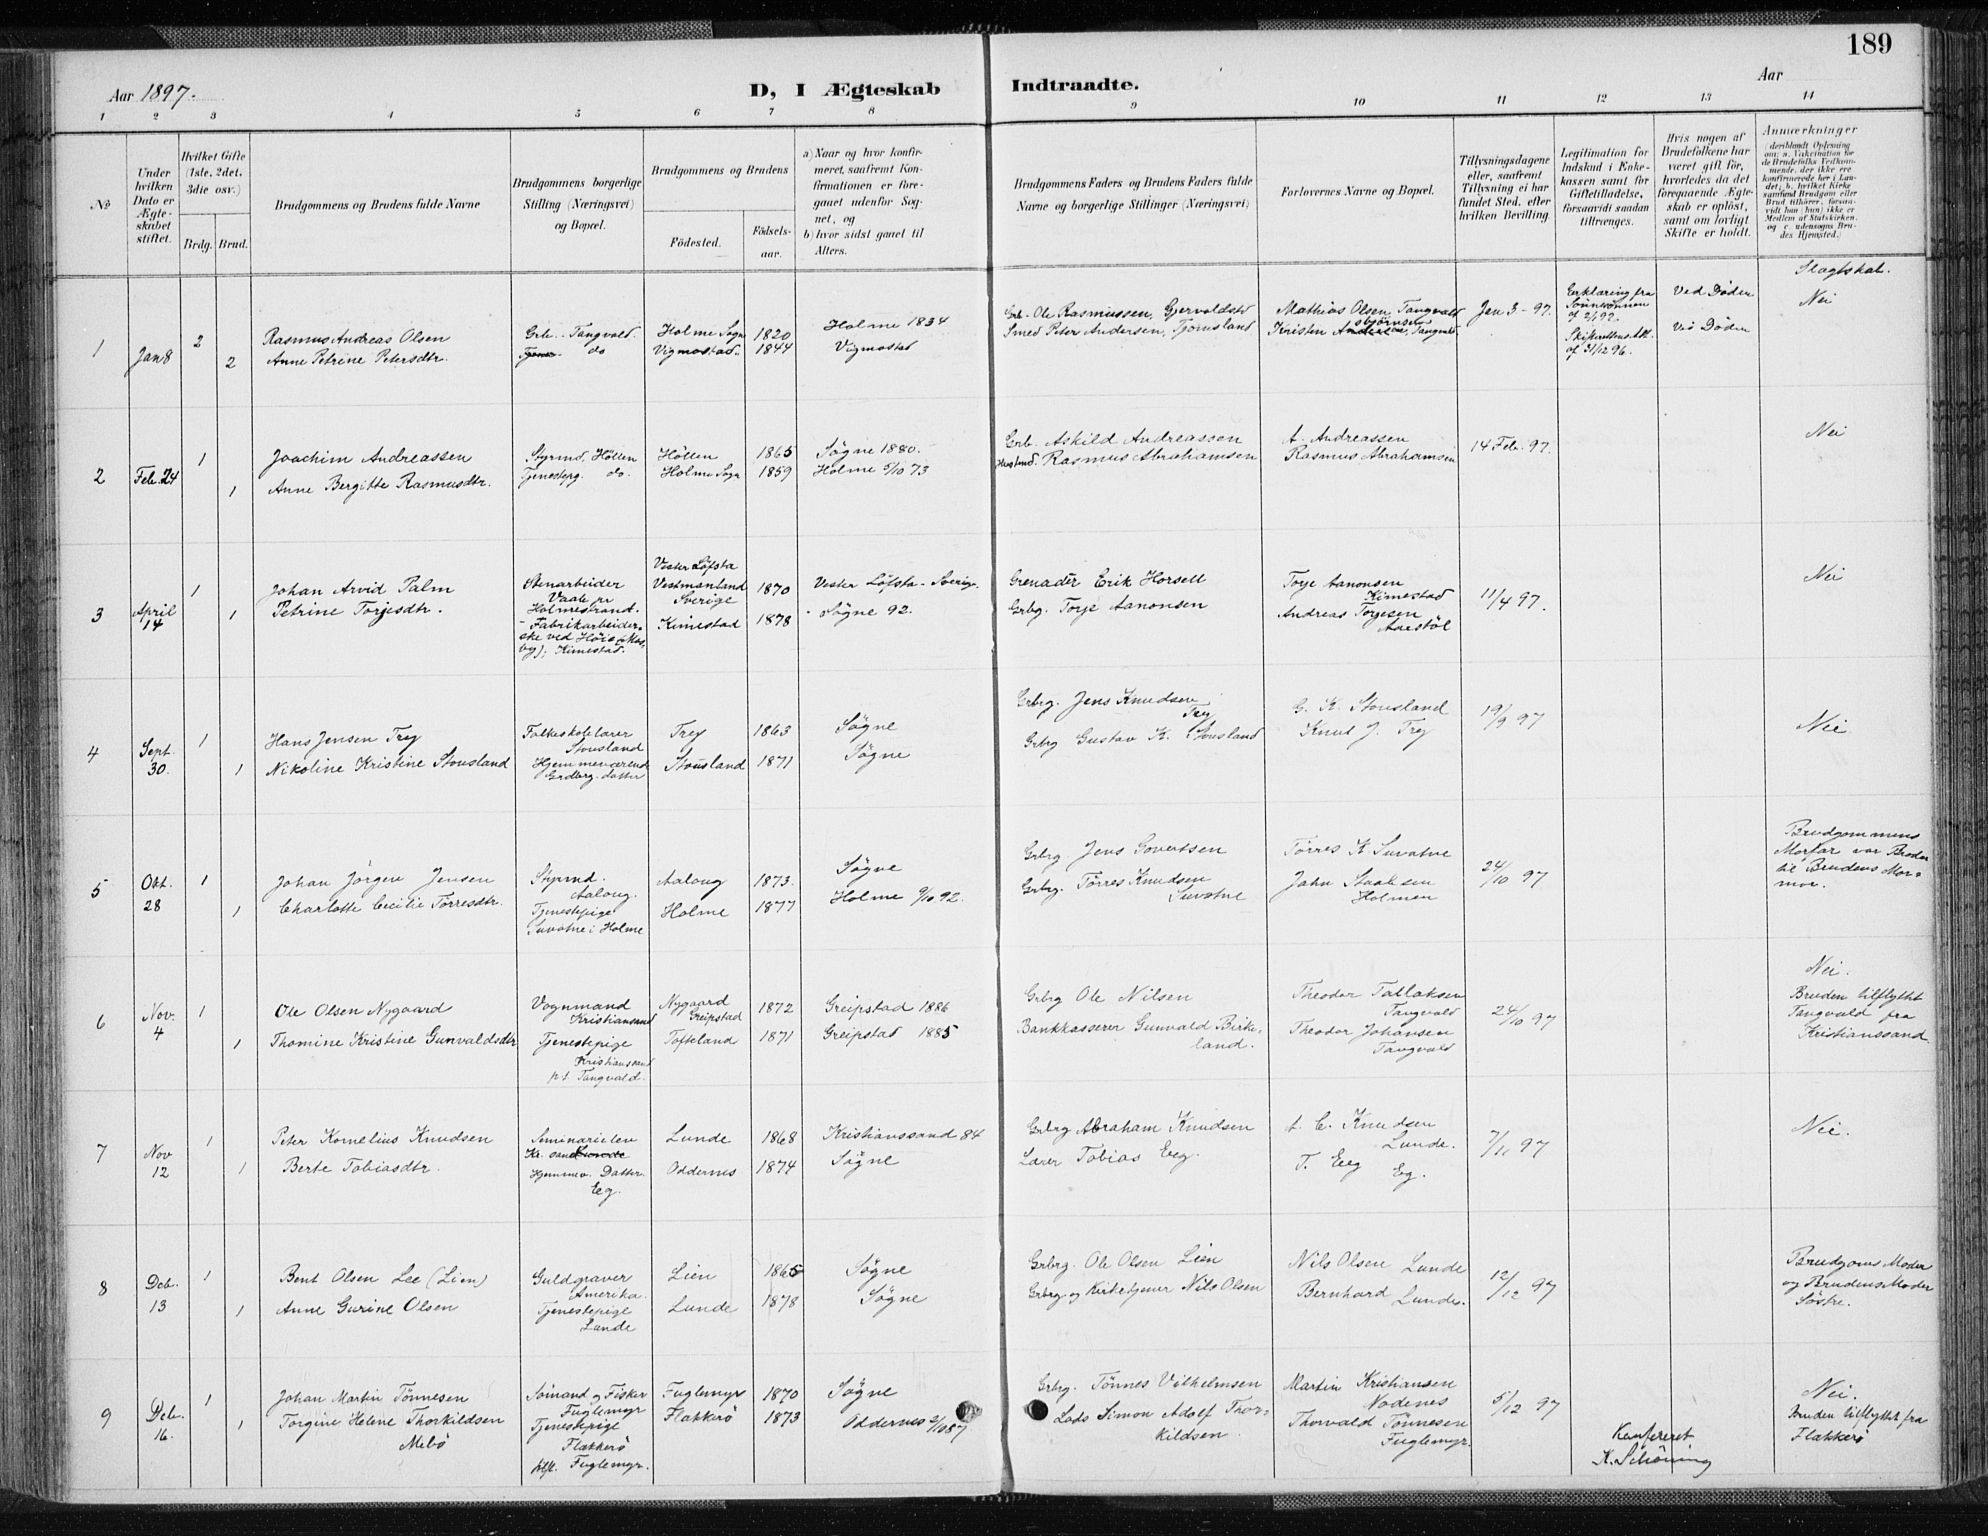 189
Aar 1897.
D, I Ægteskab Indtraadte.
Aar
1 2 3 4 5 6 7 8 9 10 11 12 13 14
No
Under hvilken Dato er Ægteskabet stiftet.
Hvilket Gifte (1ste, 2det, 3die osv.)
Brdg. Brud.
Brudgommens og Brudens fulde Navne
Brudgommens borgerlige Stilling (Næringsvei) og Bopæl.
Brudgommens og Brudens
Födested.
Födsels-aar.
a) Naar og hvor konfirmeret, saafremt Konfirmationen er foregaaet udenfor Sognet, og
b) hvor sidst gaaet til Alters.
Brudgommens Faders og Brudens Faders fulde Navne og borgerlige Stillinger (Næringsvei)
Forlovernes Navne og Bopæl.
Tillysningsdagene eller, saafremt Tillysning ei har fundet Sted, efter hvilken Bevilling.
Legitimation for Indskud i Enkekassen samt for Giftetilladelse, forsaavidt saadan tiltrænges.
Hvis nogen af Brudefolkene har været gift för, hvorledes da det foregaaende Ægteskab er oplöst, samt om lovligt Skifte er holdt.
Anmærkninger (deriblandt Oplysning om: a. Vakcination for de Brudefolks Vedkommende, der ikke ere konfirmerede her i Landet; b. hvilket Kirkesamfund Brudgom eller Brud tilhörer, forsaavidt han (hun) ikke er Medlem af Statskirken, og c. udensogns Brudes Hjemsted.)
Slagtskab.
1 Jan 8 2 Rasmus Andreas Olsen Grb. Tangvald. Holme Sogn 1820 Holme 1834 Grb. Ole Rasmussen, Gjervoldstd Mathias Olsen Tangvald Jan 3 - 97. Erklæring fra Ved Döden Nei
2 Anne Petrine Petersdtr. do Vigmostad. 1844 Vigmostad Smed Peter Andersen, Tjomsland Kristen Tangvald af 2/1 92. Ved Döden
af 31/12 96.
2 Feb. 24 1 Joachim Andreassen Styrmd. Höllen Höllen 1865 Søgne 1880. Grb. Askild Andreassen A. Andreassen 14 Feb. 97. Nei
1 Anne Bergitte Rasmusdtr. Tjenestepg. do. Holme Sogn 1859 Holme 5/10 73 Husmd. Rasmus Abrahamsen Rasmus Abrahamsen
3 April 14 1 Johan Arvid Palm Stenarbeider Vaale pr Holmestrand. Vester Löfsta Vestmanland Sverige 1870 Vester Löfsta - Sverige. Grenadér Erik Horsell Torje Aanonsen Kimestad 11/4 97. Nei
1 Petrine Torjesdtr. Fabrikarbeiderske ved Höie Kimestad. Kimestad 1878 Søgne 92. Grbg. Torje Aanonsen Andreas Torjesen
4 Sept. 30. 1 Hans Jensen Trey Folkeskolelærer Stousland Trey 1863 Søgne Grbrg. Jens Knudsen Trey G. K. Stousland 19/9 97 Nei.
1 Nikoline Kristine Stousland Hjemmeværende Grdbrg. datter Stousland 1871 Søgne Grbrg Gustav K. Stousland Knut J. Trey
5 Okt. 28 1 Johan Jörgen Jensen Styrmd. Aaloug. Aaloug 1873. Søgne Grbrg. Jens Govertsen Törres K. Suvatne 24/10 97 Brudgommens Morfar var Broder til Brudens Mormor.
1 Charlotte Cecilie Törresdtr. Tjenestepige Suvatne i Holme Holme 1877 Holme 9/10 92. Grbrg. Törres Knudsen Suvatne Jahn Holmen
6 Nov. 4 1 Ole Olsen Nygaard Vognmand Kristianssand Nygaard Greipstad 1872 Greipstad 1886 Grbrg Ole Nilsen Theodor Tallaksen Tangvald 24/10 97 Nei.
1 Thomine Kristine Gunvaldsdtr Tjenestepige Kristianssand p.t. Tangvald. Tofteland 1871 Greipstad 1885 Bankkasserer Gunvald Birkeland. Theodor Johansen Tangvald Bruden tilflyttet Tangvald fra Kristianssand
7 Nov 12 1 Peter Kornelius Knudsen Seminarielev Kr. sand Lunde 1868 Kristianssand 84 Grbrg Abraham Knudsen A. C. Knudsen Lunde. 7/11 97 Nei.
1 Berte Tobiasdtr. Hjemmev. Datter Eeg. Oddernes 1874 Søgne Lærer Tobias Eeg. T. Eeg Eg.
8 Dcb. 13 1 Bent Olsen Lee (Lien) Guldgraver Amerika. Lien 1865 Søgne Grbrg. Ole Olsen Lien Nils Olsen Lunde 12/12 97 Brudgoms Moder og Brudens Moder Söstre.
1 Anne Gurine Olsen Tjenestepige Lunde Lunde 1878 Søgne Grbrg og Kirketjener Nils Olsen Bernhard Lunde.
9 Dcb. 16. 1 Johan Martin Tönnesen Sömand og Fisker Fuglemyr Fuglemyr 1870 Søgne Grbrg. Tönnes Vilhelmsen Martin Kristiansen Nodenes 5/12 97 Nei.
1 Torgine Helene Thorkildsen Mebö Tjenestepige Flækkerö Fuglemyr. Flækkerö 1873 Oddernes 2/10 87 Lods Simon Adolf Thorkildsen. Thorvald Tönnesen Fuglemyr. Bruden tilflyttet fra Flækkerö
Konfereret
K. Schöning